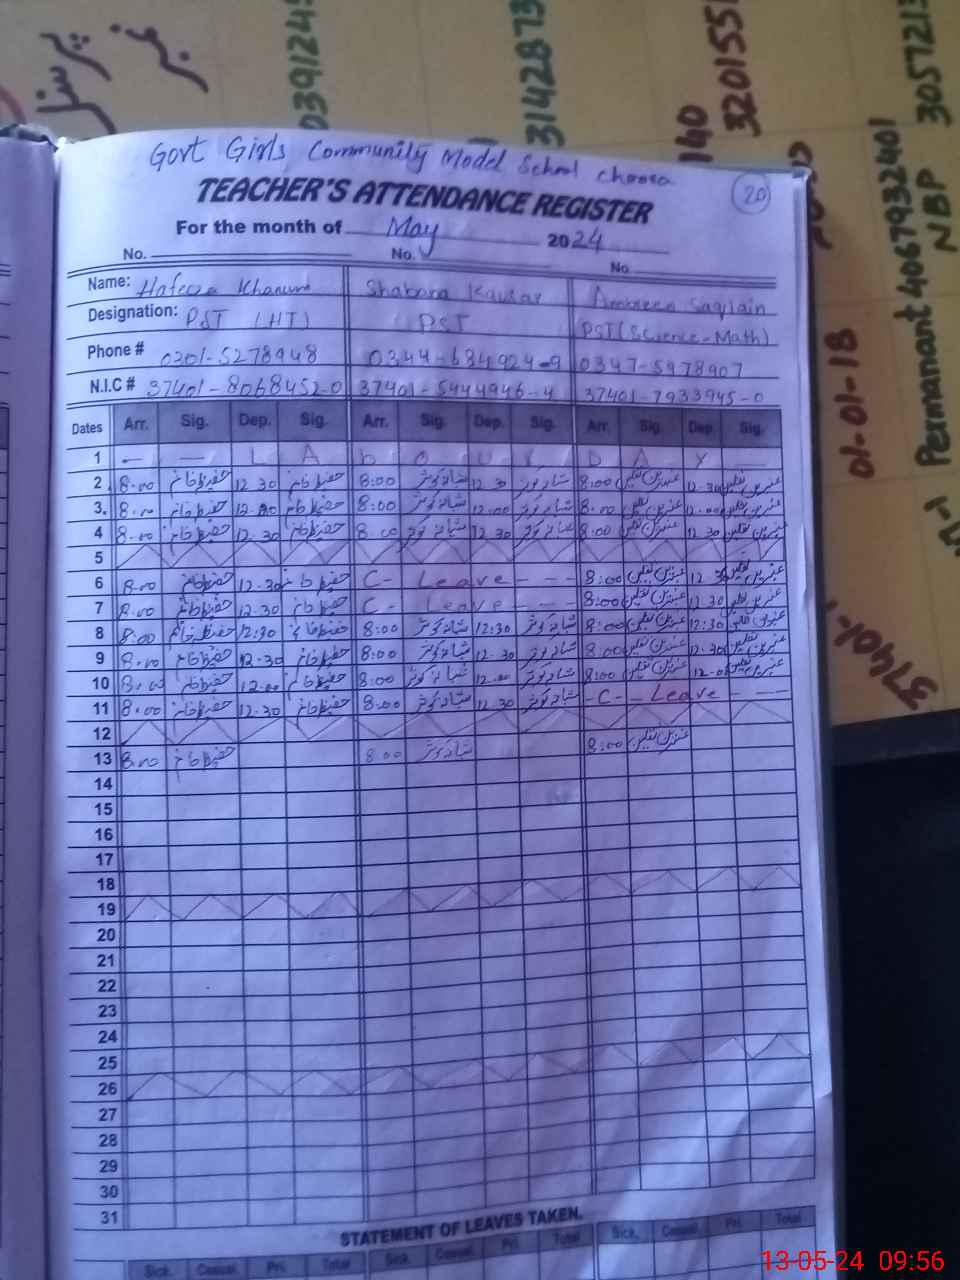 پرسنل
نمبر
0391245
3142873
140
3201551
3057213
Permanant 4067932401
NBP
01-01-18
37401-
Govt Girls Community Model School Choora
20
TEACHER'S ATTENDANCE REGISTER
For the month of May 2024
No. No. No.
Name: Hafeeza Khanum Shabana Kausar Ambreen Saqlain
Designation: PST (HT) PST PST (Science-Math)
Phone # 0301-5278948 0344-634924-9 0347-5978907
N.I.C # 37401-8068452-0 37401-5444946-4 37401-7933945-0
Dates Arr. Sig. Dep. Sig. Arr. Sig. Dep. Sig. Arr. Sig. Dep. Sig.
1 — — L A b O U R D A Y —
2 8:00 حفیظ خانم 12.30 حفیظ خانم 8:00 شبانہ کوثر 12.30 شبانہ کوثر 8:00 عنبرین ثقلین 12.30 عنبرین ثقلین
3 8:00 حفیظ خانم 12.00 حفیظ خانم 8:00 شبانہ کوثر 12:00 شبانہ کوثر 8:00 عنبرین ثقلین 12.00 عنبرین ثقلین
4 8:00 حفیظ خانم 12.30 حفیظ خانم 8:00 شبانہ کوثر 12.30 شبانہ کوثر 8:00 عنبرین ثقلین 12.30 عنبرین ثقلین
5
6 8:00 حفیظ خانم 12.30 حفیظ خانم C- Leave - - - 8:00 عنبرین ثقلین 12.30 عنبرین ثقلین
7 8:00 حفیظ خانم 12.30 حفیظ خانم C- Leave - - - 8:00 عنبرین ثقلین 12.30 عنبرین ثقلین
8 8:00 حفیظ خانم 12:30 حفیظ خانم 8:00 شبانہ کوثر 12:30 شبانہ کوثر 8:00 عنبرین ثقلین 12:30 عنبرین ثقلین
9 8:00 حفیظ خانم 12.30 حفیظ خانم 8:00 شبانہ کوثر 12.30 شبانہ کوثر 8:00 عنبرین ثقلین 12.30 عنبرین ثقلین
10 8:00 حفیظ خانم 12.00 حفیظ خانم 8:00 شبانہ کوثر 12.00 شبانہ کوثر 8:00 عنبرین ثقلین 12.00 عنبرین ثقلین
11 8:00 حفیظ خانم 12.30 حفیظ خانم 8:00 شبانہ کوثر 12.30 شبانہ کوثر -C- Leave - ---
12
13 8:00 حفیظ خانم 8:00 شبانہ کوثر 8:00 عنبرین ثقلین
14
15
16
17
18
19
20
21
22
23
24
25
26
27
28
29
30
31
STATEMENT OF LEAVES TAKEN.
Sick. Casual. Pri. Total Sick. Casual. Pri. Total Sick. Casual. Pri. Total
13-05-24 09:56